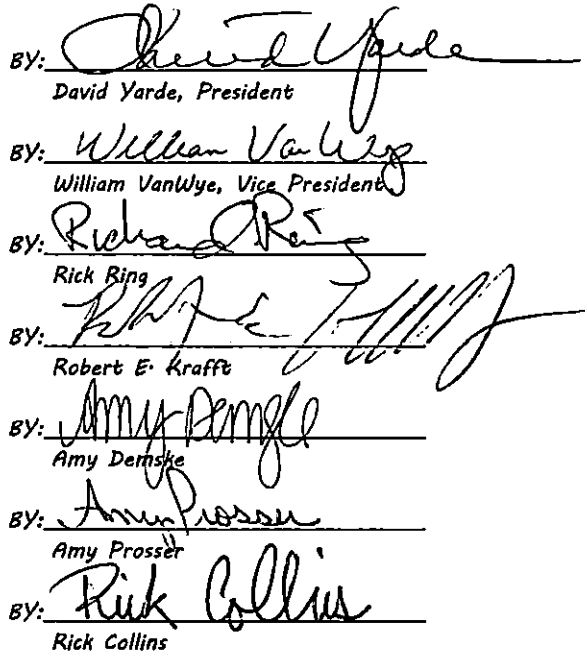 BY: David Yarde
David Yarde, President
BY: William VanWye
William VanWye, Vice President
BY: Richard Ring
Rick Ring
BY:
Robert E. Krafft
BY: Amy Demske
Amy Demske
BY: Amy Prosser
Amy Prosser
BY: Rick Collins
Rick Collins